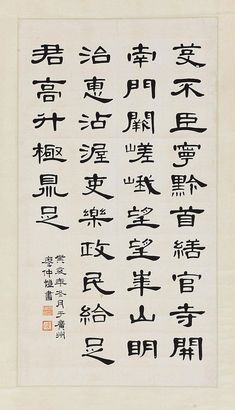 芟不臣寧黔首繕官寺開
南門闕嵯峨望望華山明
治惠沾渥吏樂政民給足
君高升極鼎足
癸亥年冬月于廣州
廖仲愷書